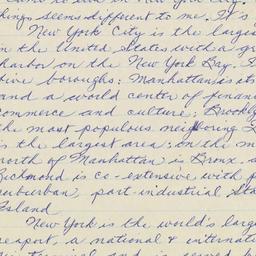 things seems different to me. It's
New York City is the larges
n the United States with a gr
harbor on the New York Bay.
five boroughs: Manhattan is its
and a world center of finan
commerce and culture; Brookly
the most populous neighboring
is the largest area; on the m
north of Manhattan is Bronx. a
Richmond is co-extensive with
suburban, part-industrial Sta
Island
New York is the world's larg
seaport, a national & internati